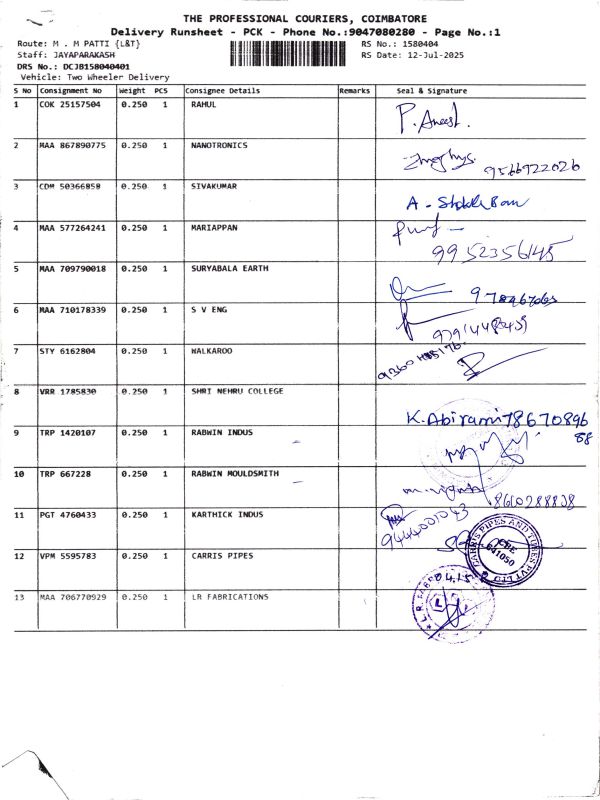 THE PROFESSIONAL COURIERS, COIMBATORE
Delivery Runsheet - PCK - Phone No.:9047080280 - Page No.:1
Route: M . M PATTI {L&T} RS No.: 1580404
Staff: JAYAPARAKASH RS Date: 12-Jul-2025
DRS No.: DCJB158040401
Vehicle: Two Wheeler Delivery
S No Consignment No Weight PCS Consignee Details Remarks Seal & Signature
1 COK 25157504 0.250 1 RAHUL
2 MAA 867890775 0.250 1 NANOTRONICS
9566922026
3 CDM 50366858 0.250 1 SIVAKUMAR A -
4 MAA 577264241 0.250 1 MARIAPPAN
9952356145
5 MAA 709790018 0.250 1 SURYABALA EARTH
6 MAA 710178339 0.250 1 S V ENG
7 STY 6162804 0.250 1 WALKAROO
8 VRR 1785830 0.250 1 SHRI NEHRU COLLEGE
K. Abirami 78670896
88
9 TRP 1420107 0.250 1 RABWIN INDUS
10 TRP 667228 0.250 1 RABWIN MOULDSMITH
8610288808
11 PGT 4760433 0.250 1 KARTHICK INDUS
9444001043
12 VPM 5595783 0.250 1 CARRIS PIPES
CARRIS PIPES AND TUBES PVT LTD
CBE
641050
13 MAA 706770929 0.250 1 LR FABRICATIONS